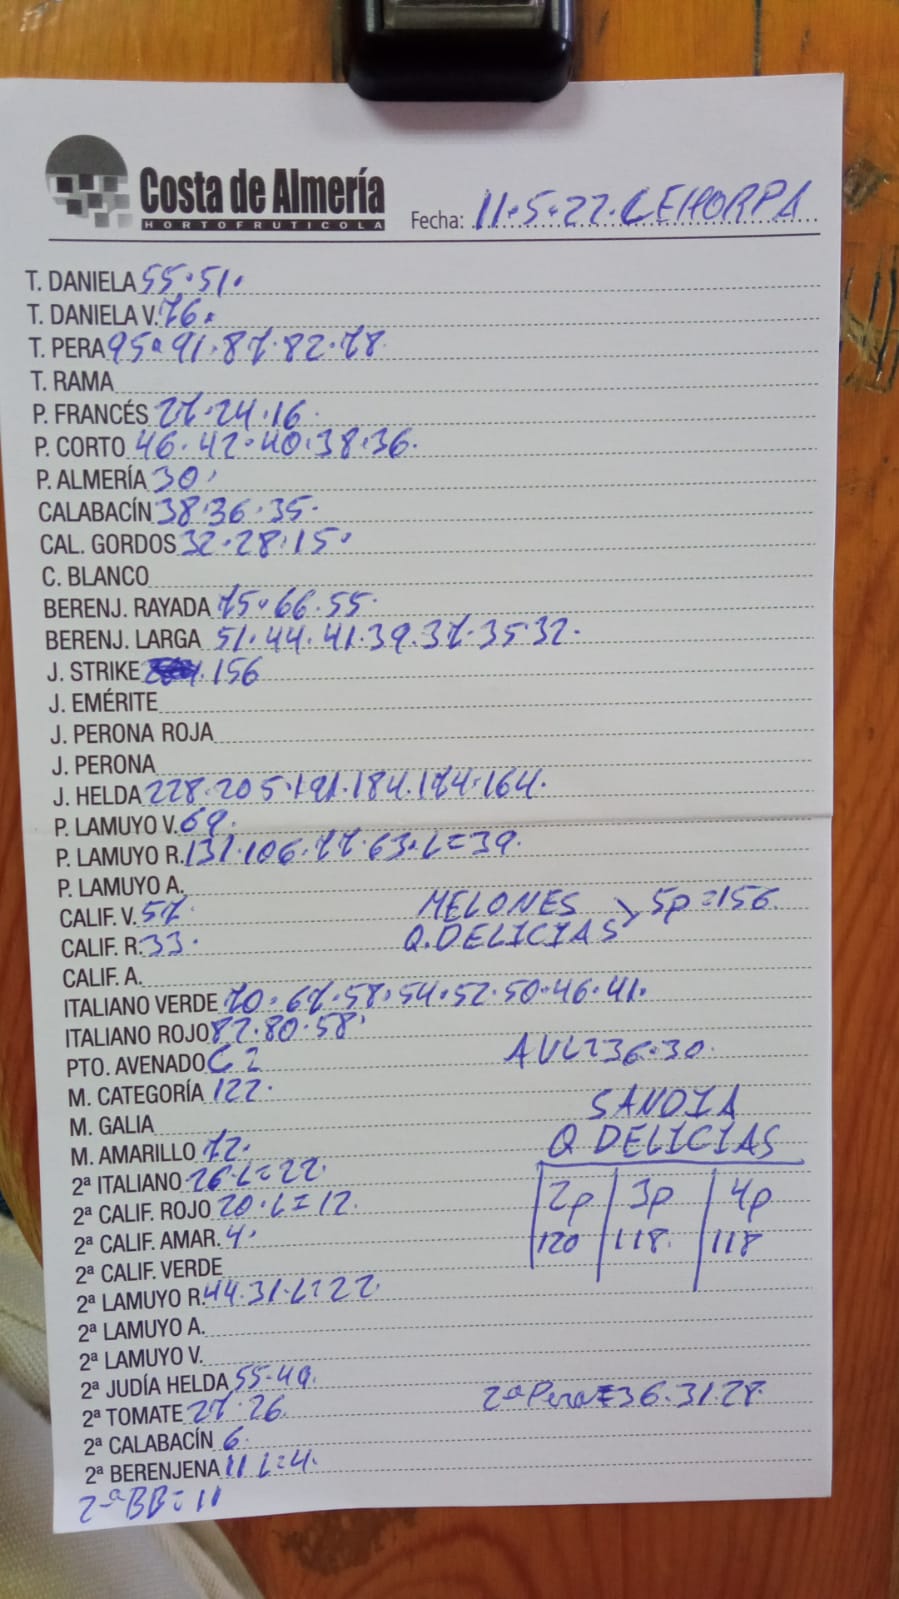 Costa de Almería
HORTOFRUTICOLA
Fecha: 11.5.22. CEHORPA
T. DANIELA 55.51.
T. DANIELA V. 76.
T. PERA 95.91.87.82.78
T. RAMA
P. FRANCÉS 27.24.16.
P. CORTO 46.42.40.38.36.
P. ALMERÍA 30.
CALABACÍN 38.36.35.
CAL. GORDOS 32.28.15.
C. BLANCO
BERENJ. RAYADA 75.66.55.
BERENJ. LARGA 51.44.41.39.37.35 32.
J. STRIKE 156
J. EMÉRITE
J. PERONA ROJA
J. PERONA
J. HELDA 228.205.191.184.174.164.
P. LAMUYO V. 69.
P. LAMUYO R. 131.106.77.63.L=39.
P. LAMUYO A.
CALIF. V. 57. MELONES 5p=156.
CALIF. R. 33. Q. DELICIAS
CALIF. A.
ITALIANO VERDE 70.67.58.54.52.50.46.41.
ITALIANO ROJO 82.80.58.
PTO. AVENADO C 2 AVL=36.30.
M. CATEGORÍA 122.
M. GALIA SANDIA
M. AMARILLO 72. Q DELICIAS
2ª ITALIANO 26 L=22. 2p 3p 4p
2ª CALIF. ROJO 20.L=12.
2ª CALIF. AMAR. 4. 120 118. 118
2ª CALIF. VERDE
2ª LAMUYO R. 44.31.L=22.
2ª LAMUYO A.
2ª LAMUYO V.
2ª JUDÍA HELDA 55.49.
2ª TOMATE 27.26. 2ª Pera=36.31.28.
2ª CALABACÍN 6.
2ª BERENJENA 11 L=4.
2ªBB=11